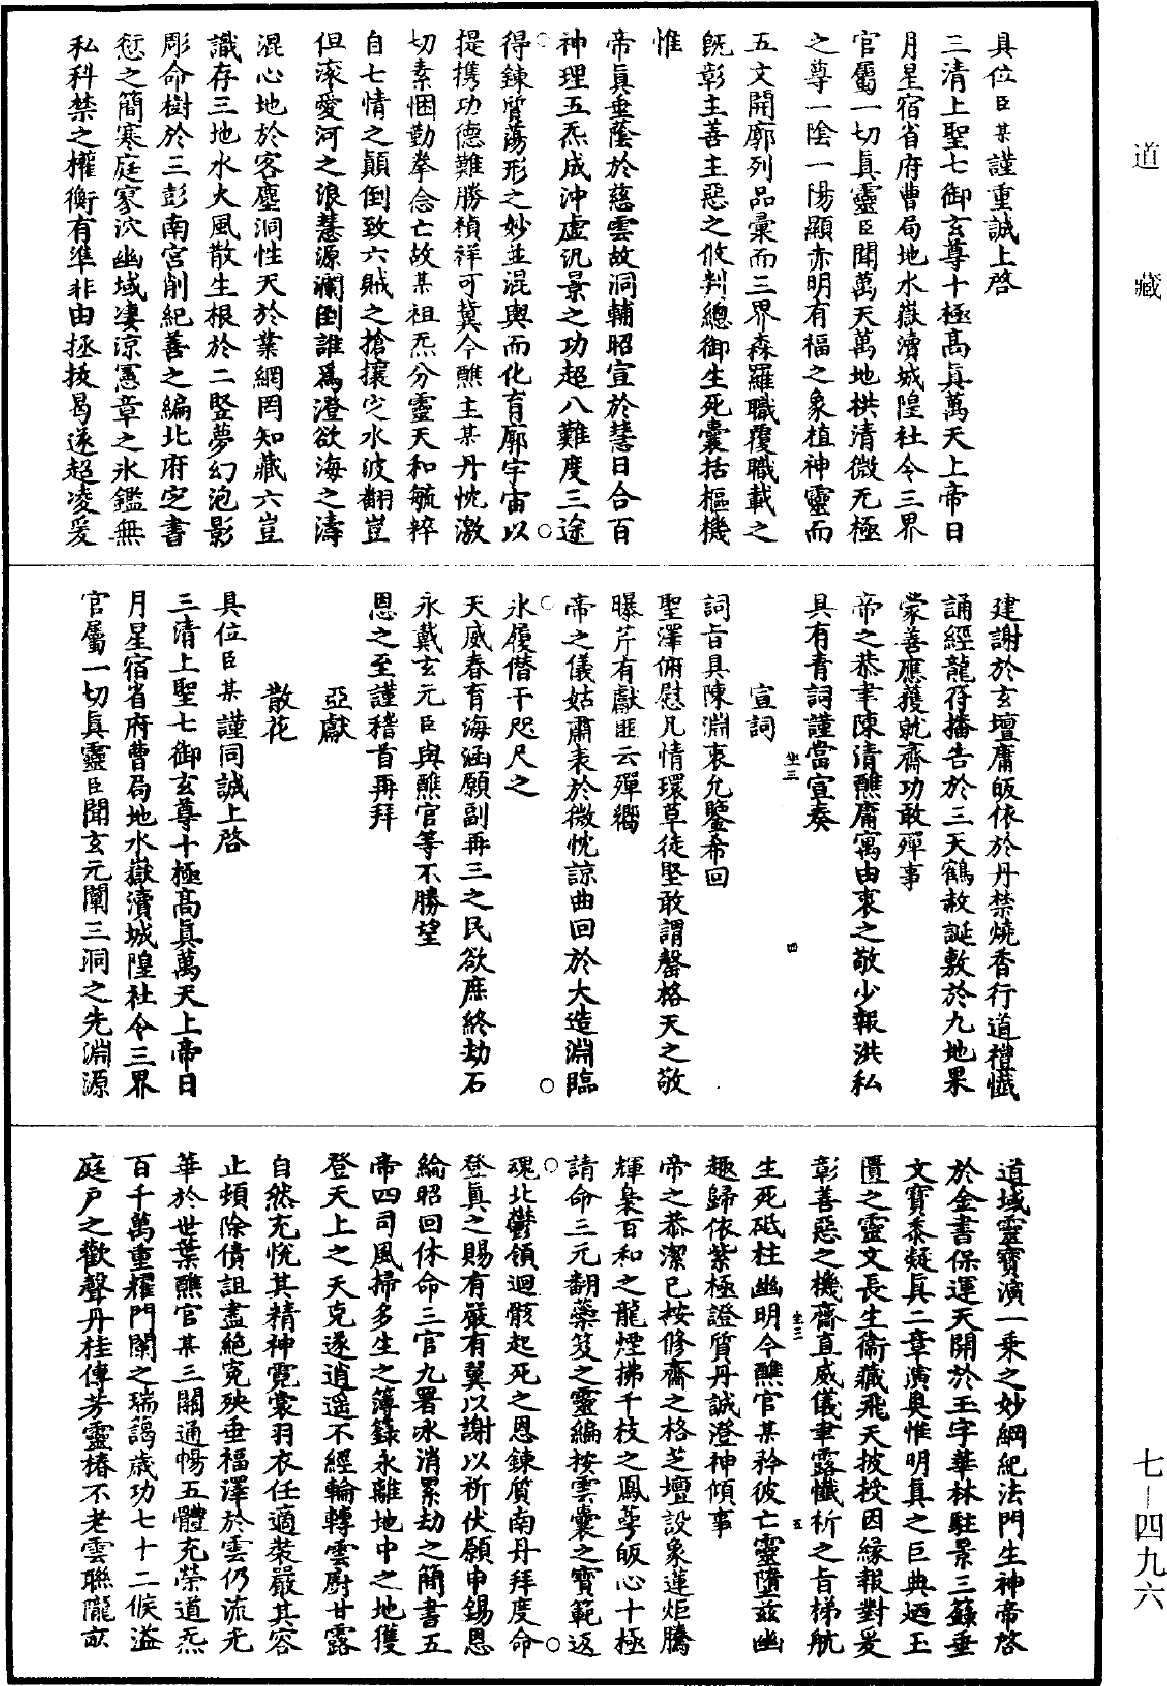 道藏
具位臣某謹重誠上啓
三清上聖七御玄尊十極高眞萬天上帝日
月星宿省府曹局地水嶽瀆城隍社令三界
官屬一切眞靈臣聞萬天萬地栱清微无極
之尊一陰一陽顯赤明有福之象植神靈而
五文開廓列品彙而三界森羅職覆職載之
旣彰主善主惡之攸判總御生死囊括樞機
惟
帝眞垂蔭於慈雲故洞輔昭宣於慧日合百
神理五炁成沖虛汎景之功超八難度三途
得鍊質蕩形之妙並混輿而化育廓宇宙以
提携功德難勝禎祥可冀今醮主某丹忱激
切素悃勤拳念亡故某祖炁分靈天和毓粹
自七情之顛倒致六賊之搶攘定水波翻豈
但滚愛河之浪慧源瀾倒誰爲澄欲海之濤
混心地於客塵洞性天於業網罔知藏六豈
識存三地水火風散生根於二竪夢幻泡影
彫命樹於三彭南宮削紀善之編北府定書
愆之簡寒庭寥泬幽域凄涼憲章之氷鑑無
私科禁之權衡有準非由拯拔曷遂超凌爰
建謝於玄壇庸皈依於丹禁燒香行道禮懺
誦經龍符播告於三天鶴赦誕敷於九地果
蒙善應獲就齋功敢殫事
帝之恭聿陳清醮庸寓由衷之敬少報洪私
具有青詞謹當宣奏
坐三　四
宣詞
詞旨具陳淵衷允鑒希回
聖澤俯慰凡情環草徒堅敢謂罄格天之敬
曝芹有獻匪云殫嚮
帝之儀姑肅表於微忱諒曲回於大造淵臨
氷履僭干咫尺之
天威春育海涵願副再三之民欲庶終劫石
永戴玄元臣與醮官等不勝望
恩之至謹稽首再拜
亞獻
散花
具位臣某謹同誠上啓
三清上聖七御玄尊十極高眞萬天上帝日
月星宿省府曹局地水嶽瀆城隍社令三界
官屬一切眞靈臣聞玄元闡三洞之先淵源
道域靈寶演一乗之妙綱紀法門生神帝啓
於金書保運天開於玉字華林駐景三籙垂
文寶黍凝眞二章演奥惟明眞之巨典廼玉
匱之靈文長生衞藏飛天披授因緣報對爰
彰善惡之機齋直威儀聿露懺祈之旨梯航
坐三　五
生死砥柱幽明今醮官某矜彼亡靈墮兹幽
趣歸依紫極證質丹誠澄神傾事
帝之恭潔已按修齋之格芝壇設象蓮炬騰
輝裊百和之龍煙拂千枝之鳳蕚皈心十極
請命三元翻蘂笈之靈編按雲囊之寶範返
魂北鬱領迴骸起死之恩鍊質南丹拜度命
登眞之賜有嚴有翼以謝以祈伏願申錫恩
綸昭回休命三官九署氷消累劫之簡書五
帝四司風掃多生之簿錄永離地中之地獲
登天上之天克遂逍遥不經輪轉雲廚甘露
自然充恱其精神霓裳羽衣任適裝嚴其容
止頓除債詛盡絕寃殃垂福澤於雲仍流光
華於世葉醮官某三關通暢五體充榮道炁
百千萬重耀門闌之瑞藹歲功七十二候溢
庭戶之歡聲丹桂傳芳靈椿不老雲聯隴畝
七—四九六